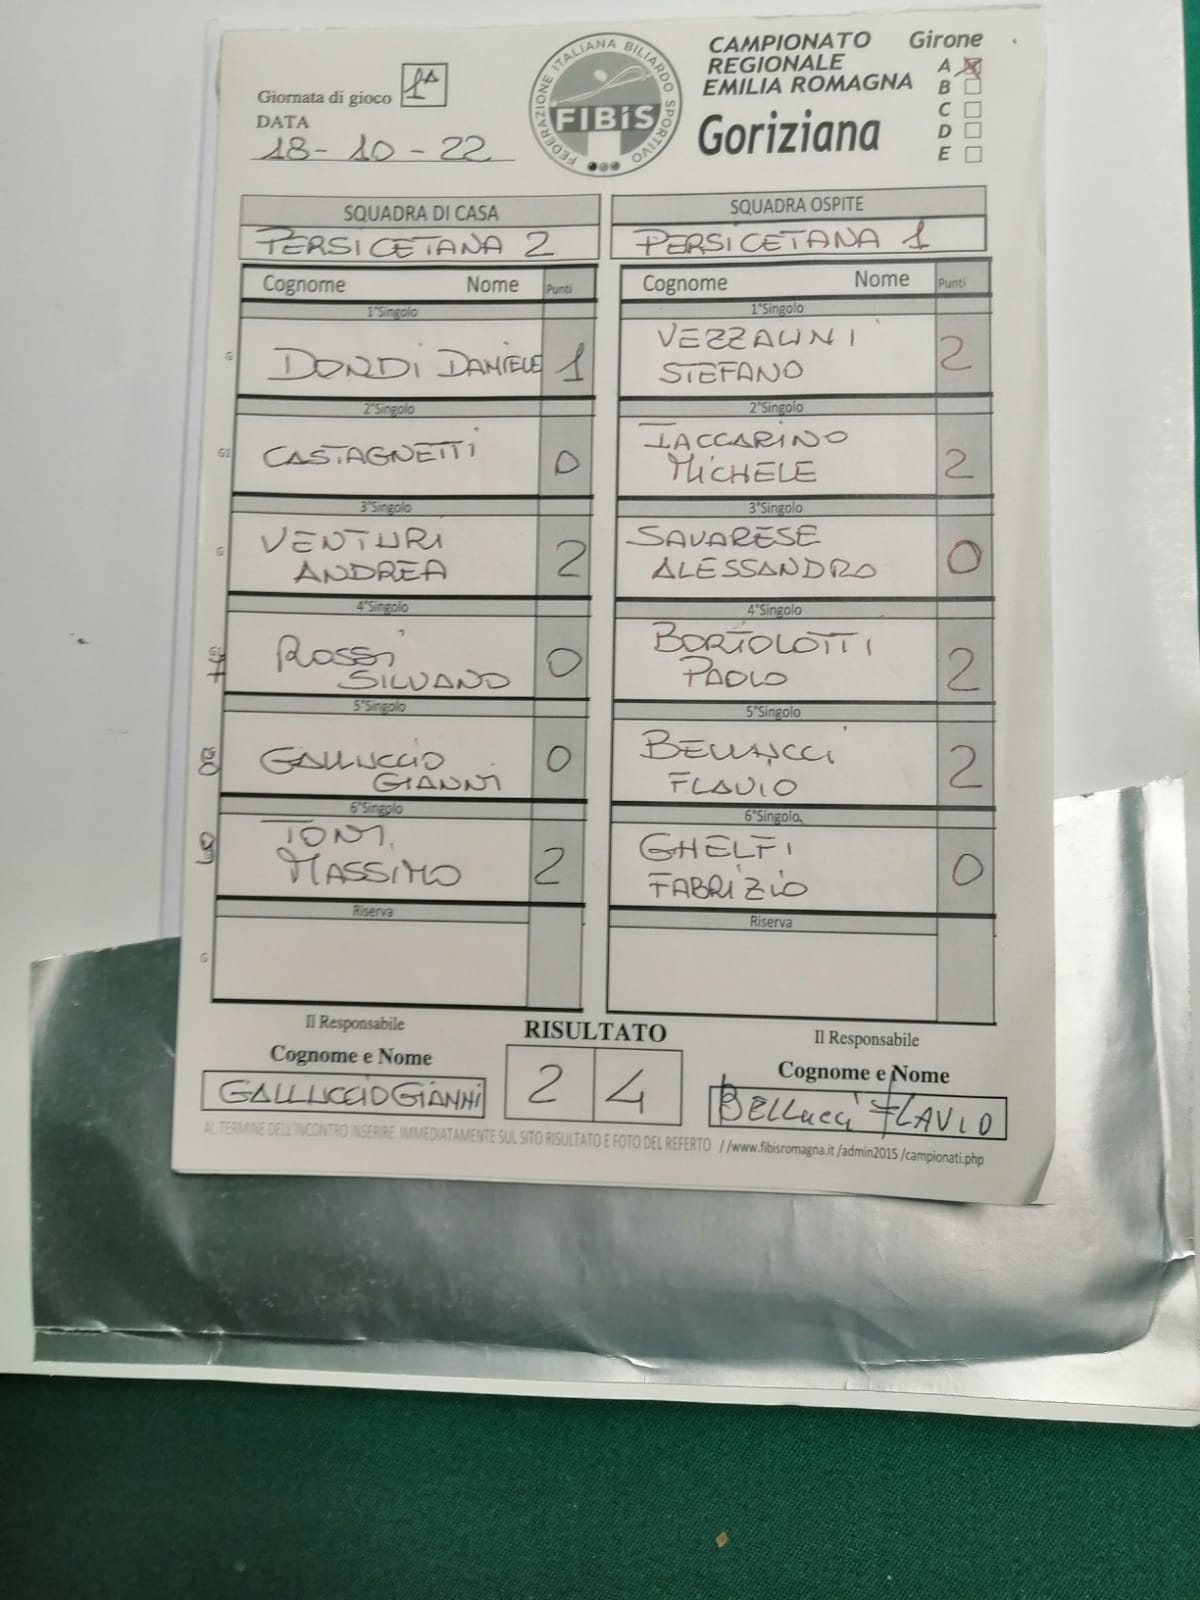 Giornata di gioco 1ª
DATA
18-10-22
FEDERAZIONE ITALIANA BILIARDO SPORTIVO
FIBiS
CAMPIONATO
REGIONALE
EMILIA ROMAGNA
Goriziana
Girone
A
B
C
D
E
SQUADRA DI CASA
PERSICETANA 2
Cognome Nome Punti
1°Singolo
DONDI DANIELE 1
2°Singolo
CASTAGNETTI 0
3°Singolo
VENTURI
ANDREA 2
4°Singolo
ROSSI
SILVANO 0
5°Singolo
GALLUCCIO
GIANNI 0
6°Singolo
TONI
MASSIMO 2
Riserva
SQUADRA OSPITE
PERSICETANA 1
Cognome Nome Punti
1°Singolo
VEZZALINI
STEFANO 2
2°Singolo
IACCARINO
MICHELE 2
3°Singolo
SAVARESE
ALESSANDRO 0
4°Singolo
BORTOLOTTI
PAOLO 2
5°Singolo
BELLUCCI
FLAVIO 2
6°Singolo
GHELFI
FABRIZIO 0
Riserva
Il Responsabile
Cognome e Nome
GALLUCCIO GIANNI
RISULTATO
2 4
Il Responsabile
Cognome e Nome
BELLUCCI FLAVIO
AL TERMINE DELL'INCONTRO INSERIRE IMMEDIATAMENTE SUL SITO RISULTATO E FOTO DEL REFERTO //www.fibisromagna.it /admin2015 /campionati.php